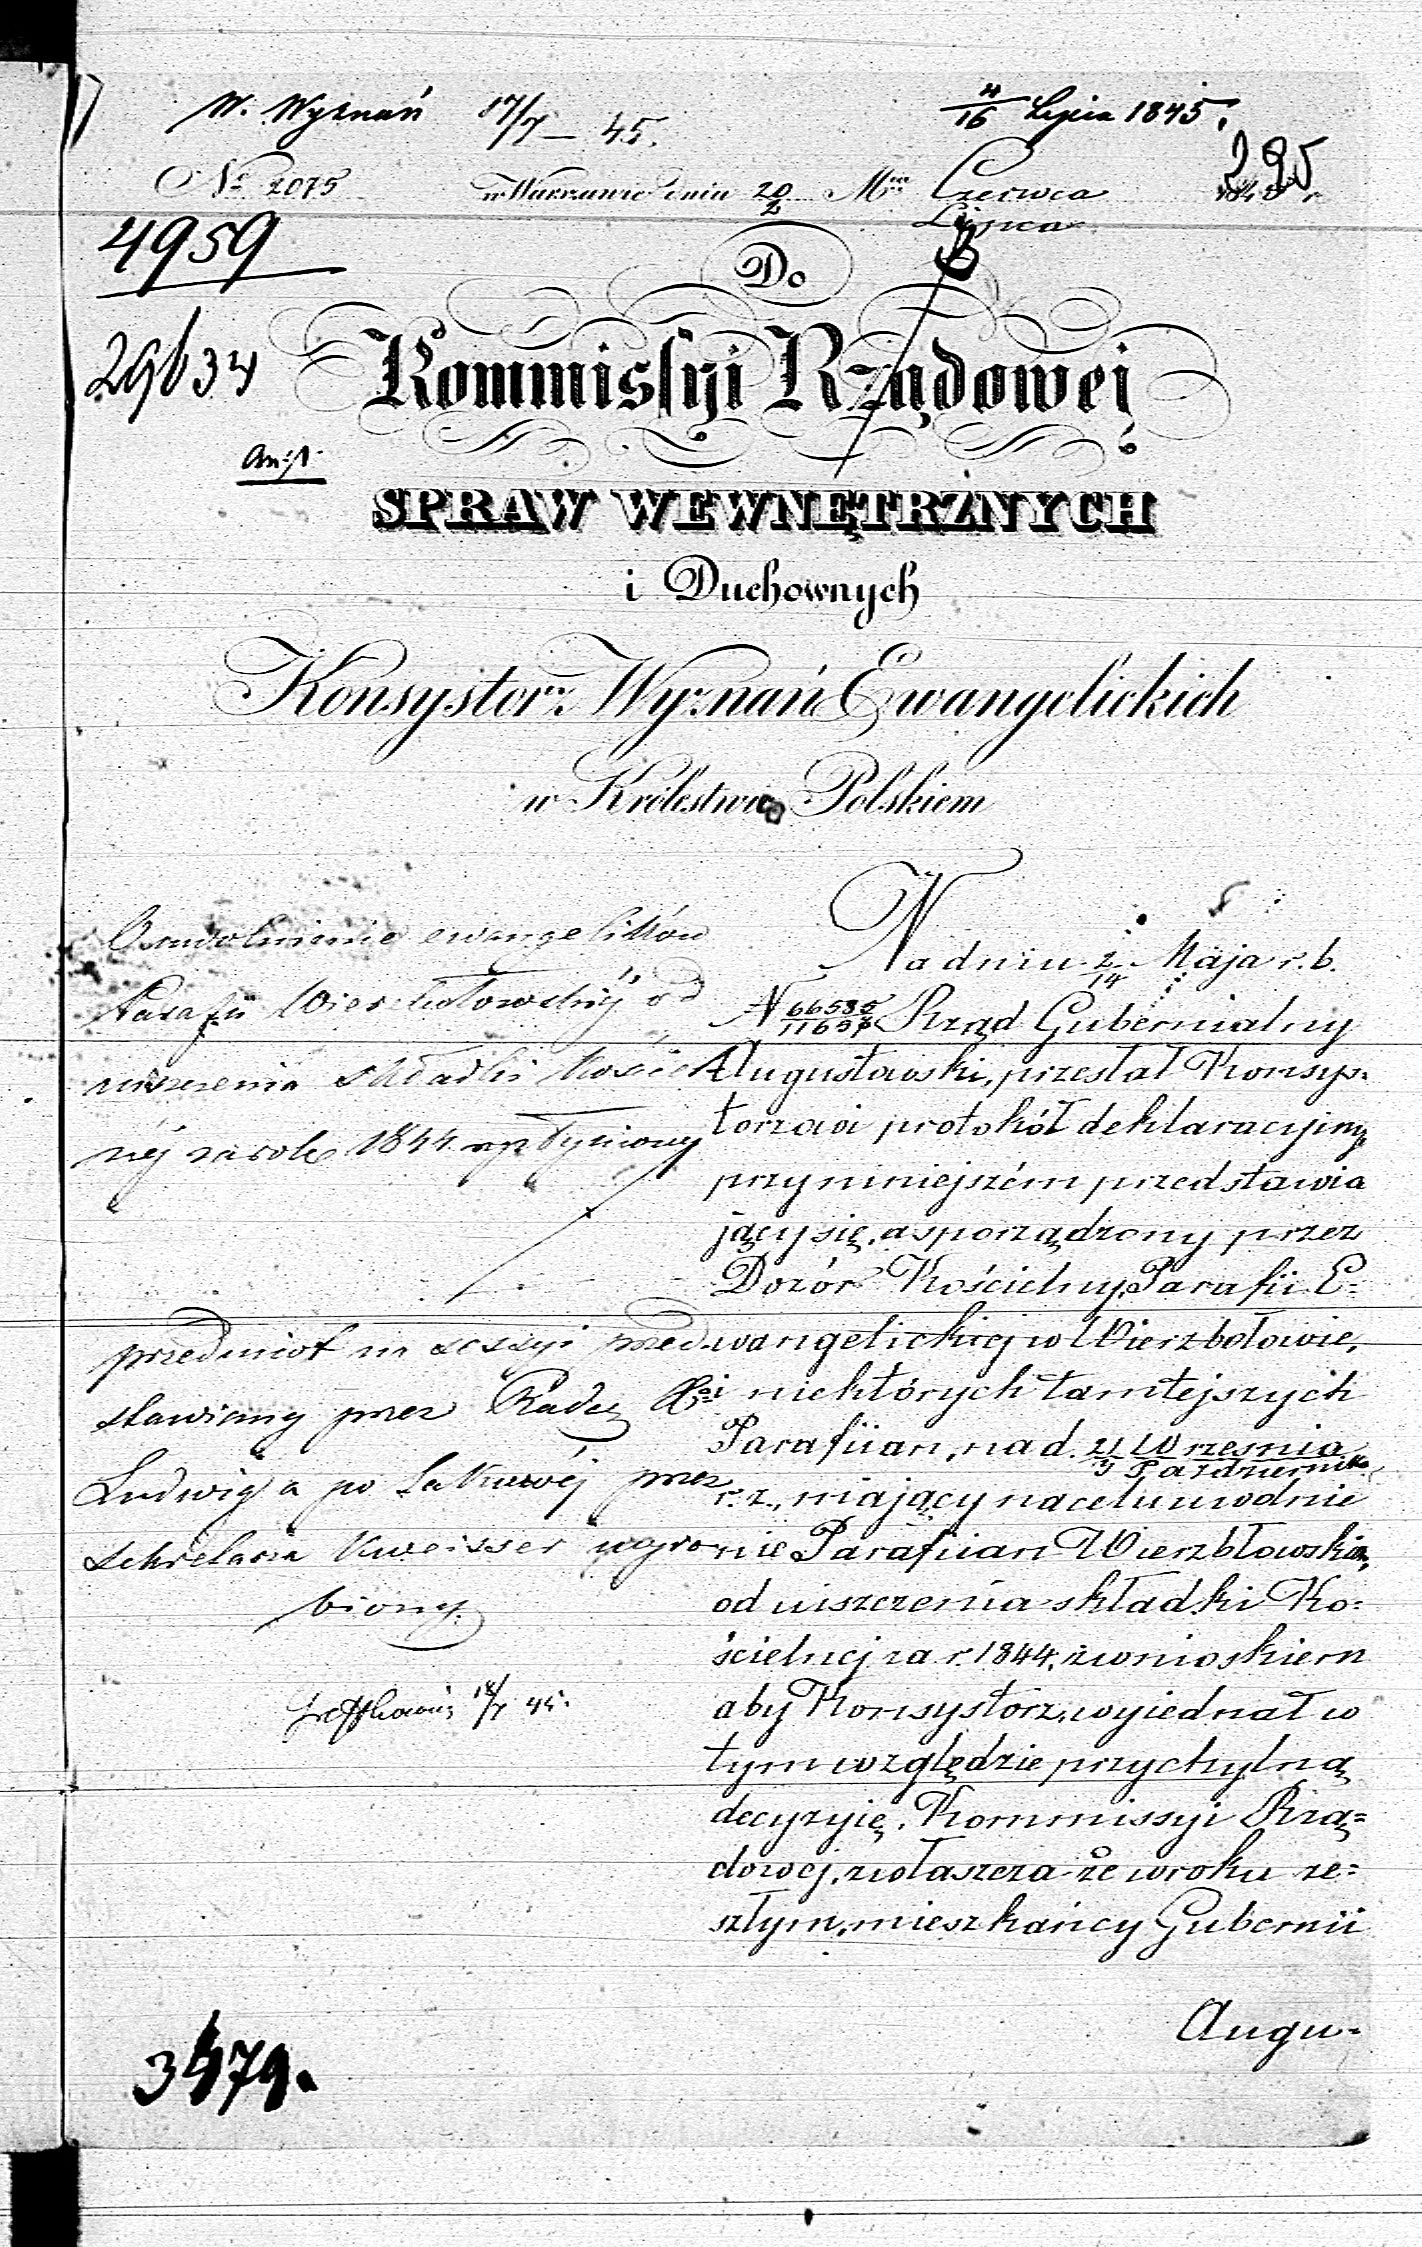 W. Wyznań 17/7 – 45.
4/16 Lipca 1845.
295
No 2075 w Warszawie dnia 20/2 Mca Czerwca/Lipca 1845 r
4959
Do
29634
Kommissyi Rządowej
SPRAW WEWNĘTRZNYCH
i Duchownych
Konsystorz Wyznań Ewangelickich
w Królestwie Polskiem
ewangelików
Parafii Wierzbołowskiéj od
uiszczenia składki Kościel
néj za rok 1844.
przedmiot na sessyi przed
stawiony przez Radcę
Ludwiga po
Sekretarza wygro
biony.
18/7 45.
Na dniu 2/14 Maja r. b.
N 66535/11657 Rząd Gubernialny
Augustowski, przesłał Konsys-
torzowi protokół deklaracyjny,
przy niniejszém przedstawia
jący się, a sporządzony przez
Dozór Kościelny Parafii E-
wangelickiej w Wierzbołowie,
i niektórych tamtejszych
Parafiian, na d. 21 Września/3 Października
r. z., mający na celu uwolnie
nie Parafiian Wierzbłowskich,
od uiszczenia składki Ko-
ścielnej za r. 1844, z wnioskiem
aby Konsystorz, wyjednał w
tym względzie przychylną
decyzyię, Kommissyi Rzą-
dowej, zwłaszcza że w roku ze-
szłym, mieszkańcy Gubernii
Augu-
3479.